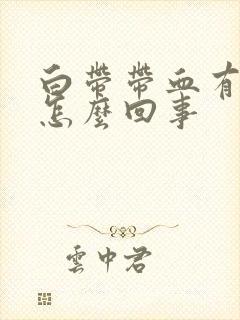 白帶帶血有
怎麼回事
雲中君